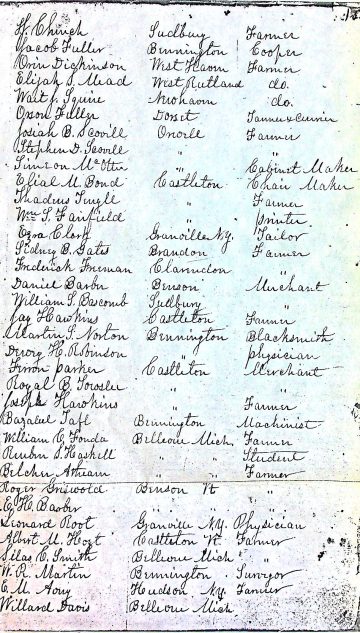 H. Church Sudbury Farmer
Jacob Fuller Bennington Cooper
Orin Dickinson West Haven Farmer
Elijah S. Mead West Rutland do.
Wait J. Squire Newhaven do.
Orson Fuller Dorset Tanner & Currier
Josiah B. Scovill Orwell Farmer
Stephen D. Scovill " "
Simeon " Cabinet Maker
Efial M. Bond Castleton Chair Maker
Thadeus " Farmer
Wm S. Fairfield " Printer
Ezra Clark Granville N.Y. Tailor
Sidney B. Gates Brandon Farmer
Frederick Freeman Clarendon "
Daniel Barber Benson Merchant
William S. Bascomb Sudbury "
Jay Hawkins Castleton Farmer
Martin S. Norton Bennington Blacksmith
H. Robinson " Physician
Barker Castleton Merchant
Royal B. " "
Joseph Hawkins " Farmer
Bazaleel Taft Bennington Machinist
William C. Fonda Bellevue Mich. Farmer
Reuben S. Haskell " " Student
" " Farmer
Roger Griswold Benson Vt "
C. H. Barber " "
Leonard Root Granville N.Y. Physician
Albert M. Hoyt Castleton Vt. Farmer
Silas C. Smith Bellevue Mich "
W. R. Martin Bennington Surveyor
C. M. Hudson N.Y. Farmer
Willard Davis Bellevue Mich